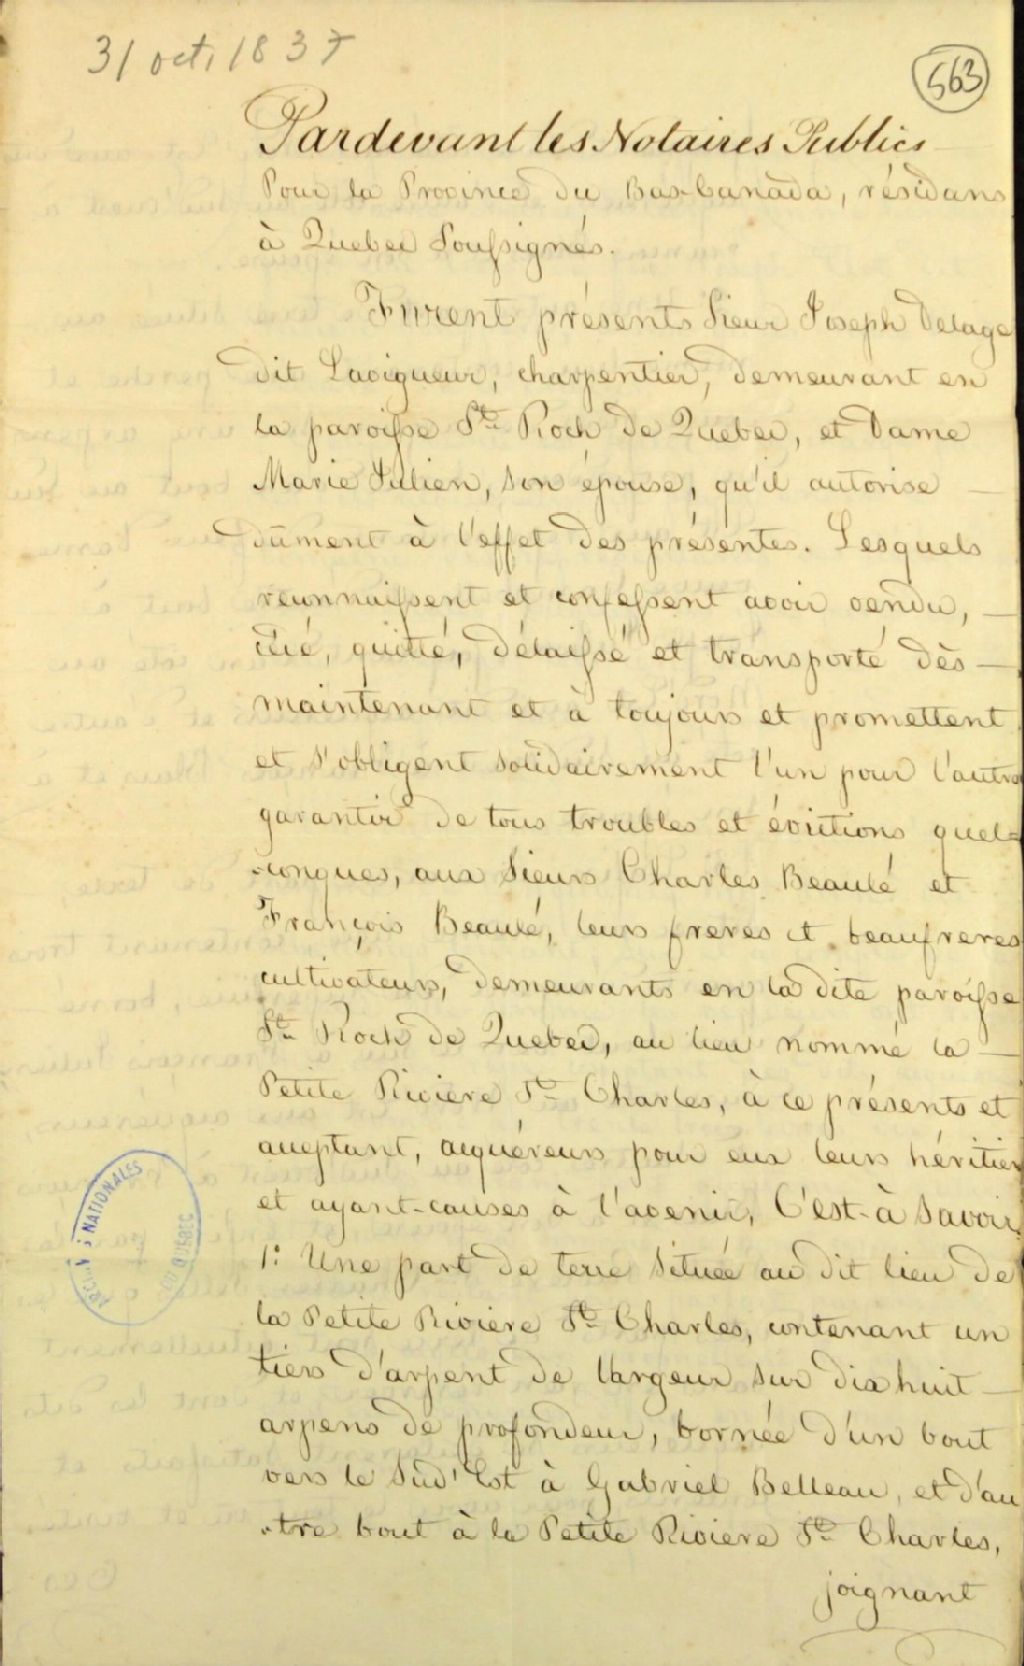 31 oct. 1837
563
Pardevant les Notaires Publics
Pour la Province du Bas-Canada, résidans
à Quebec Soussignés.
Furent présents Sieur Joseph Delage
dit Lavigueur, charpentier, demeurant en
la paroisse St. Roch de Quebec, et Dame
Marie Julien, son épouse, qu'il autorise
dûment à l'effet des présentes. Lesquels
reconnaissent et confessent avoir vendu,
cédé, quitté, délaissé et transporté dès
maintenant et à toujours et promettent
et s'obligent solidairement l'un pour l'autre
garantir de tous troubles et évictions quel=
-conques, aux Sieurs Charles Beaulé et
François Beaulé, leurs freres et beaufreres
cultivateurs, demeurants en la dite paroisse
St. Roch de Quebec, au lieu nommé la
Petite Riviere St. Charles, à ce présents et
acceptant, acquéreurs pour eux leurs héritiers
et ayant-causes à l'avenir, C'est-à Savoir
1: Une part de terre située au dit lieu de
la Petite Riviere St. Charles, contenant un
tiers d'arpent de largeur sur dix huit
arpens de profondeur, bornée d'un bout
vers le Sud'Est à Gabriel Belleau, et d'au
-tre bout à la Petite Riviere St. Charles,
joignant
ARCHIVES NATIONALES
DU QUÉBEC